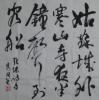 姑蘇城外
寒山寺夜半
鐘聲到
客船